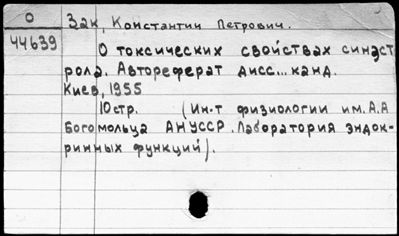 О Зак, Константин Петрович.
44639
О токсических свойствах синэст
рола. Автореферат дисс... канд.
Киев, 1955
10стр. (Ин-т физиологии им. А.А
Богомольца АН УССР. Лаборатория эндок-
ринных функций).